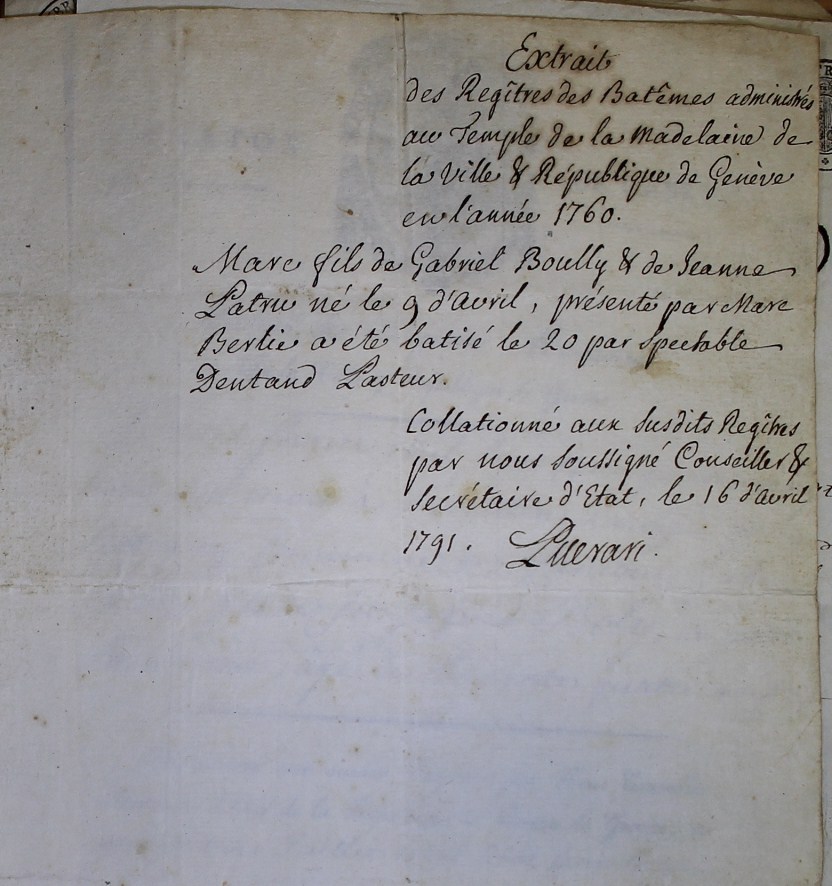 Extrait
des Regîtres des Batêmes administrés
au Temple de la Madelaine de
la Ville & République de Genève
en l'année 1760.
Marc fils de Gabriel Boully & de Jeanne
Patru né le 9 d'Avril, présenté par Marc
Berlie a été batisé le 20 par Spectable
Dentand Pasteur.
Collationné aux susdits Regîtres
par nous soussigné Conseiller &
Secrétaire d'Etat, le 16 d'Avril
1791. Puerari.